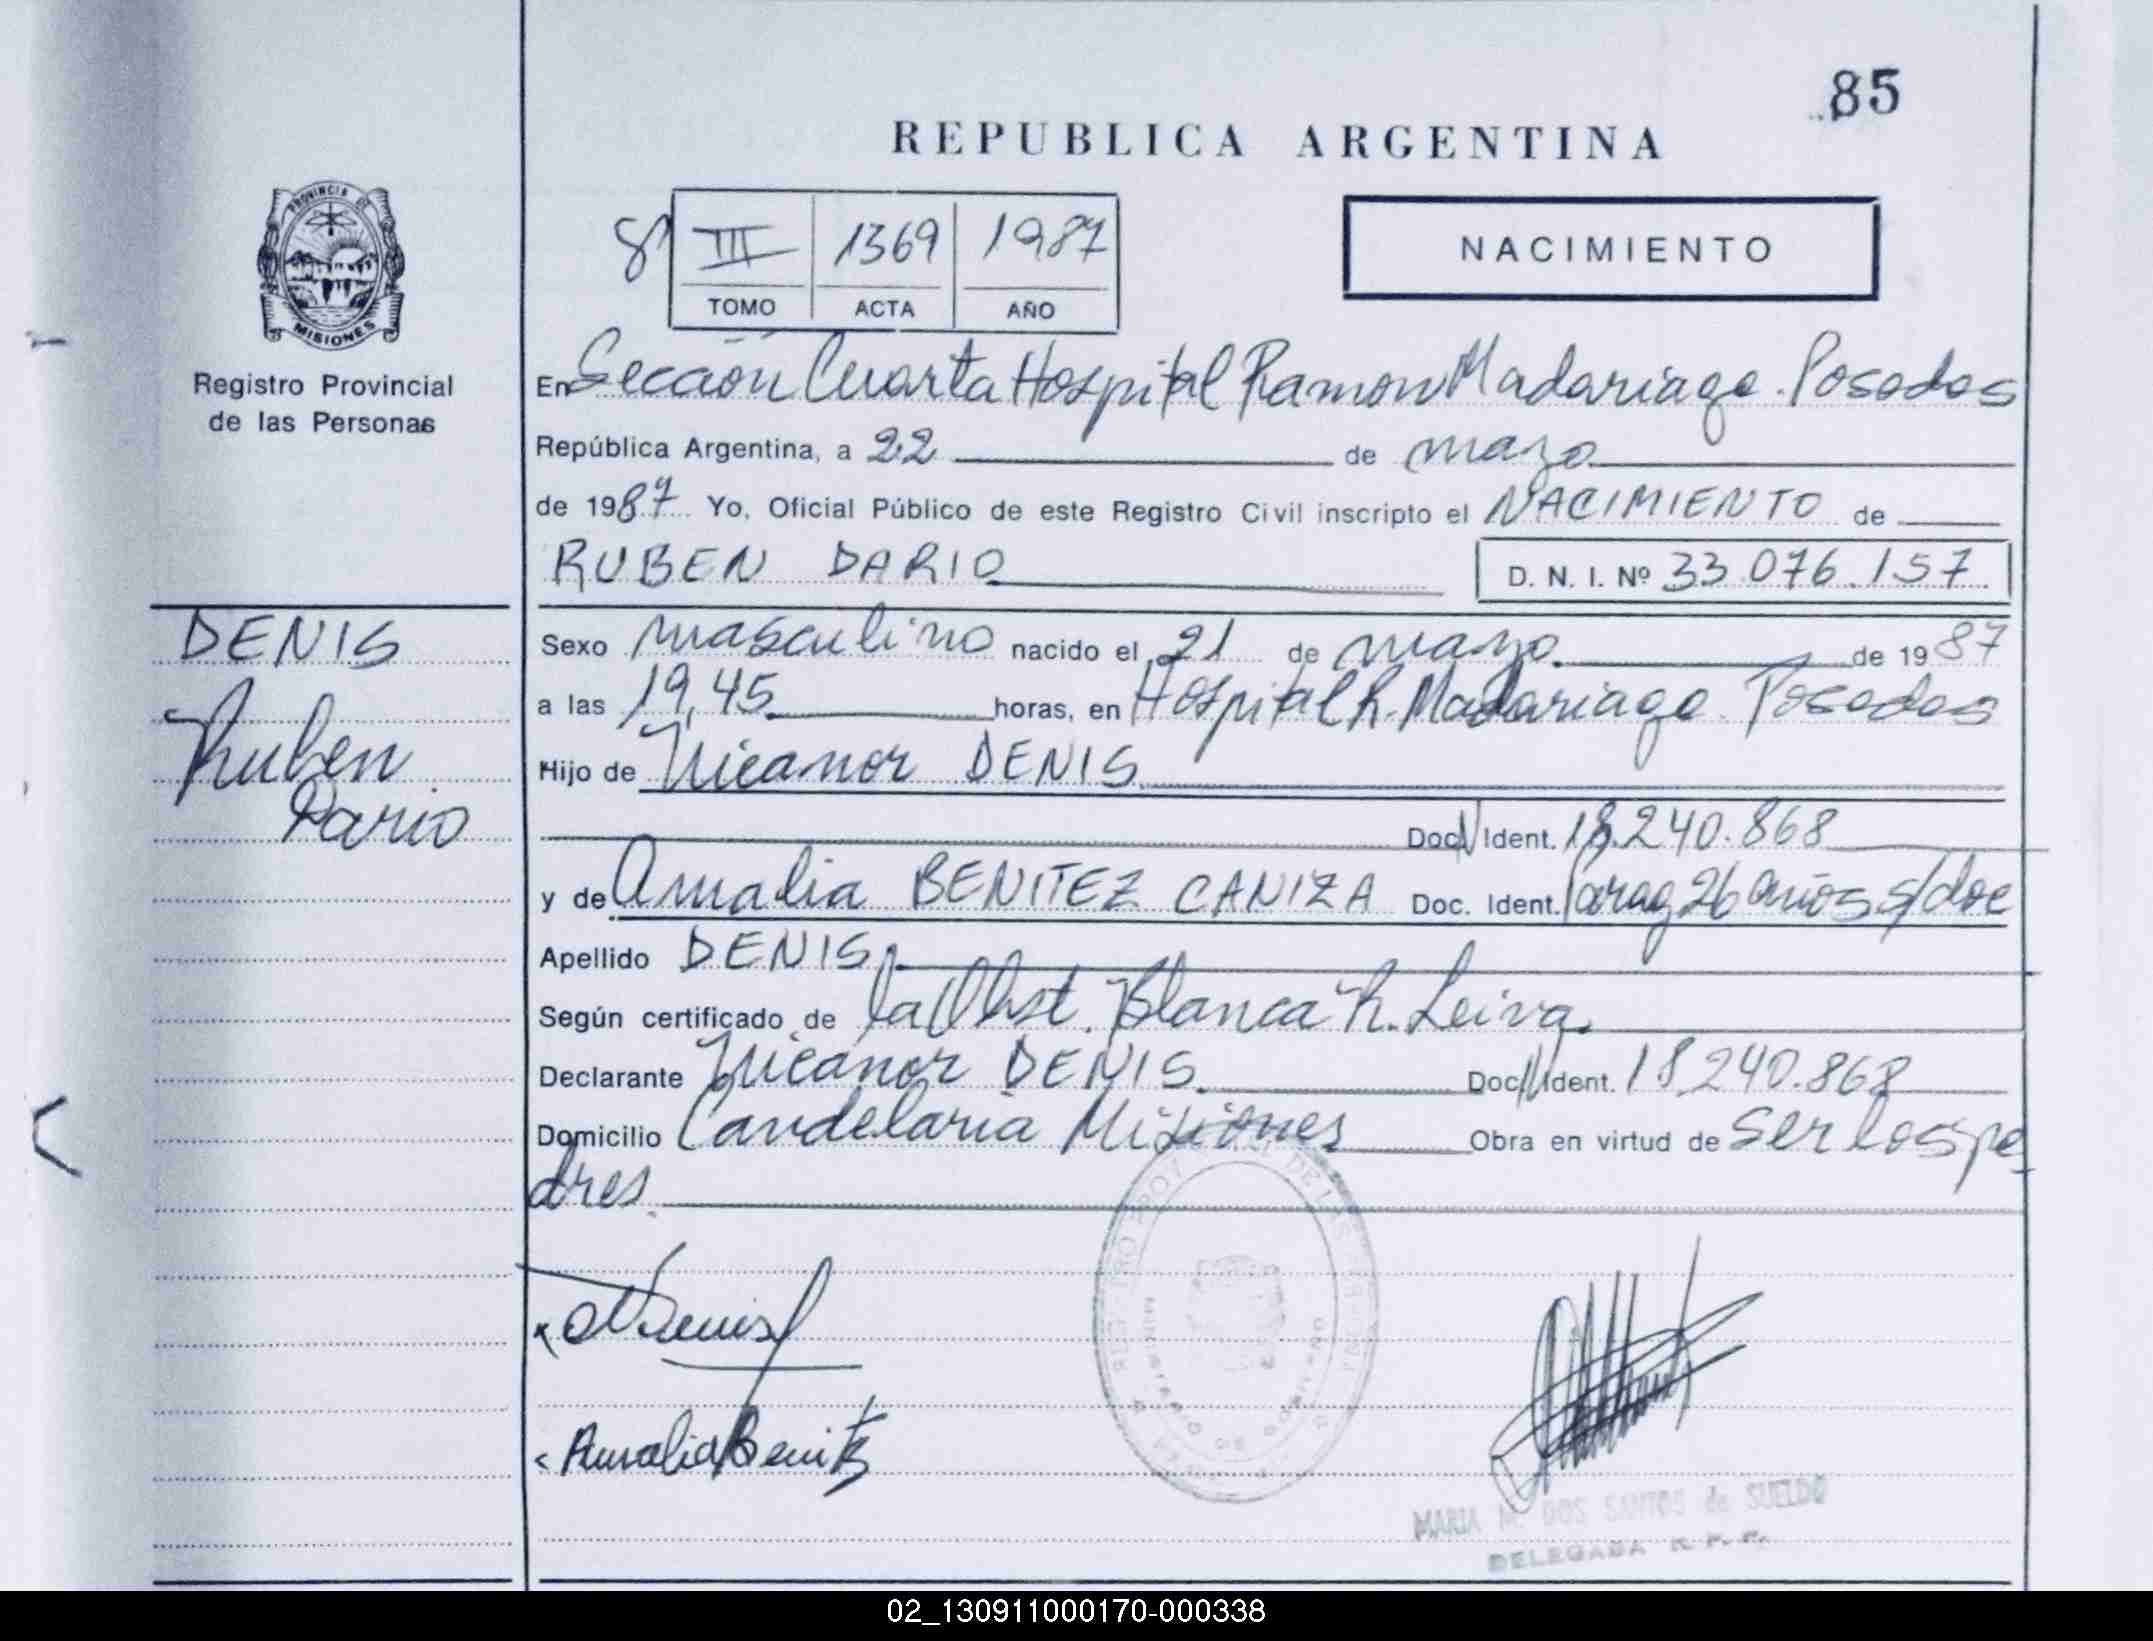 85
REPUBLICA ARGENTINA
PROVINCIA DE
MISIONES
Registro Provincial
de las Personas
III 1369 1987
TOMO ACTA AÑO
NACIMIENTO
En Sección Cuarta Hospital Ramon Madariaga. Posadas
República Argentina, a 22 de mayo
de 1987 Yo, Oficial Público de este Registro Civil inscripto el NACIMIENTO de
RUBEN DARIO D. N. I. Nº 33.076.157
DENIS
Ruben
Dario
Sexo masculino nacido el 21 de mayo de 1987
a las 19,45 horas, en Hospital R. Madariaga. Posadas
Hijo de Nicanor DENIS
Doc. Ident. 18.240.868
y de Amalia BENITEZ CANIZA Doc. Ident. Parag 26 años s/doc
Apellido DENIS
Según certificado de la Obst. Blanca R. Leiva.
Declarante Nicanor DENIS Doc. Ident. 18.240.868
Domicilio Candelaria Misiones Obra en virtud de ser los pa
dres.
Amalia Benitez
MARIA M. DOS SANTOS de SUELDO
DELEGADA R. P. P.
02_130911000170-000338